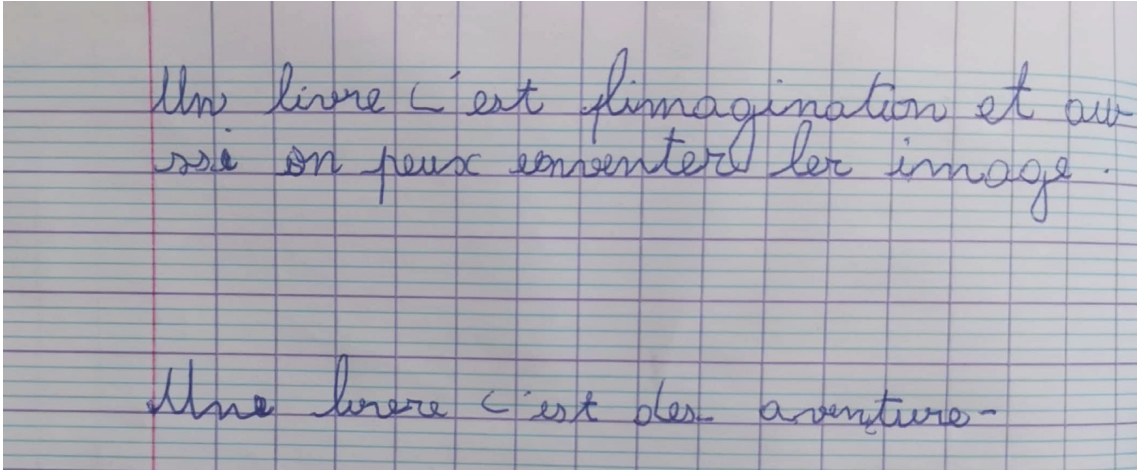 Un livre c'est l'imagination et au
ssi on peux les image.
Une livre c'est des aventure